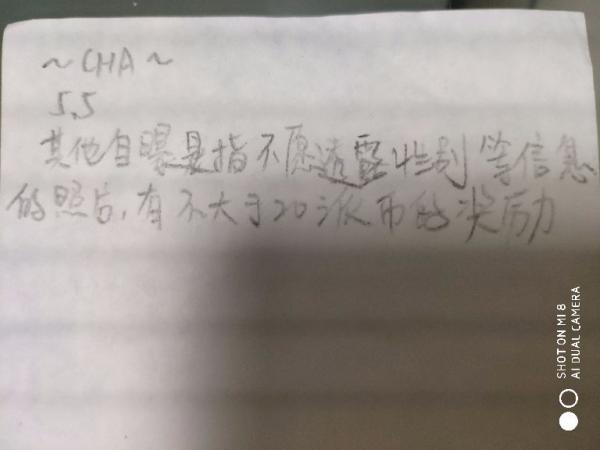 ~CHA~
5.5
其他自曝是指不愿透露性别等信息
的照片,有不大于20派币的奖励
SHOT ON MI 8
AI DUAL CAMERA